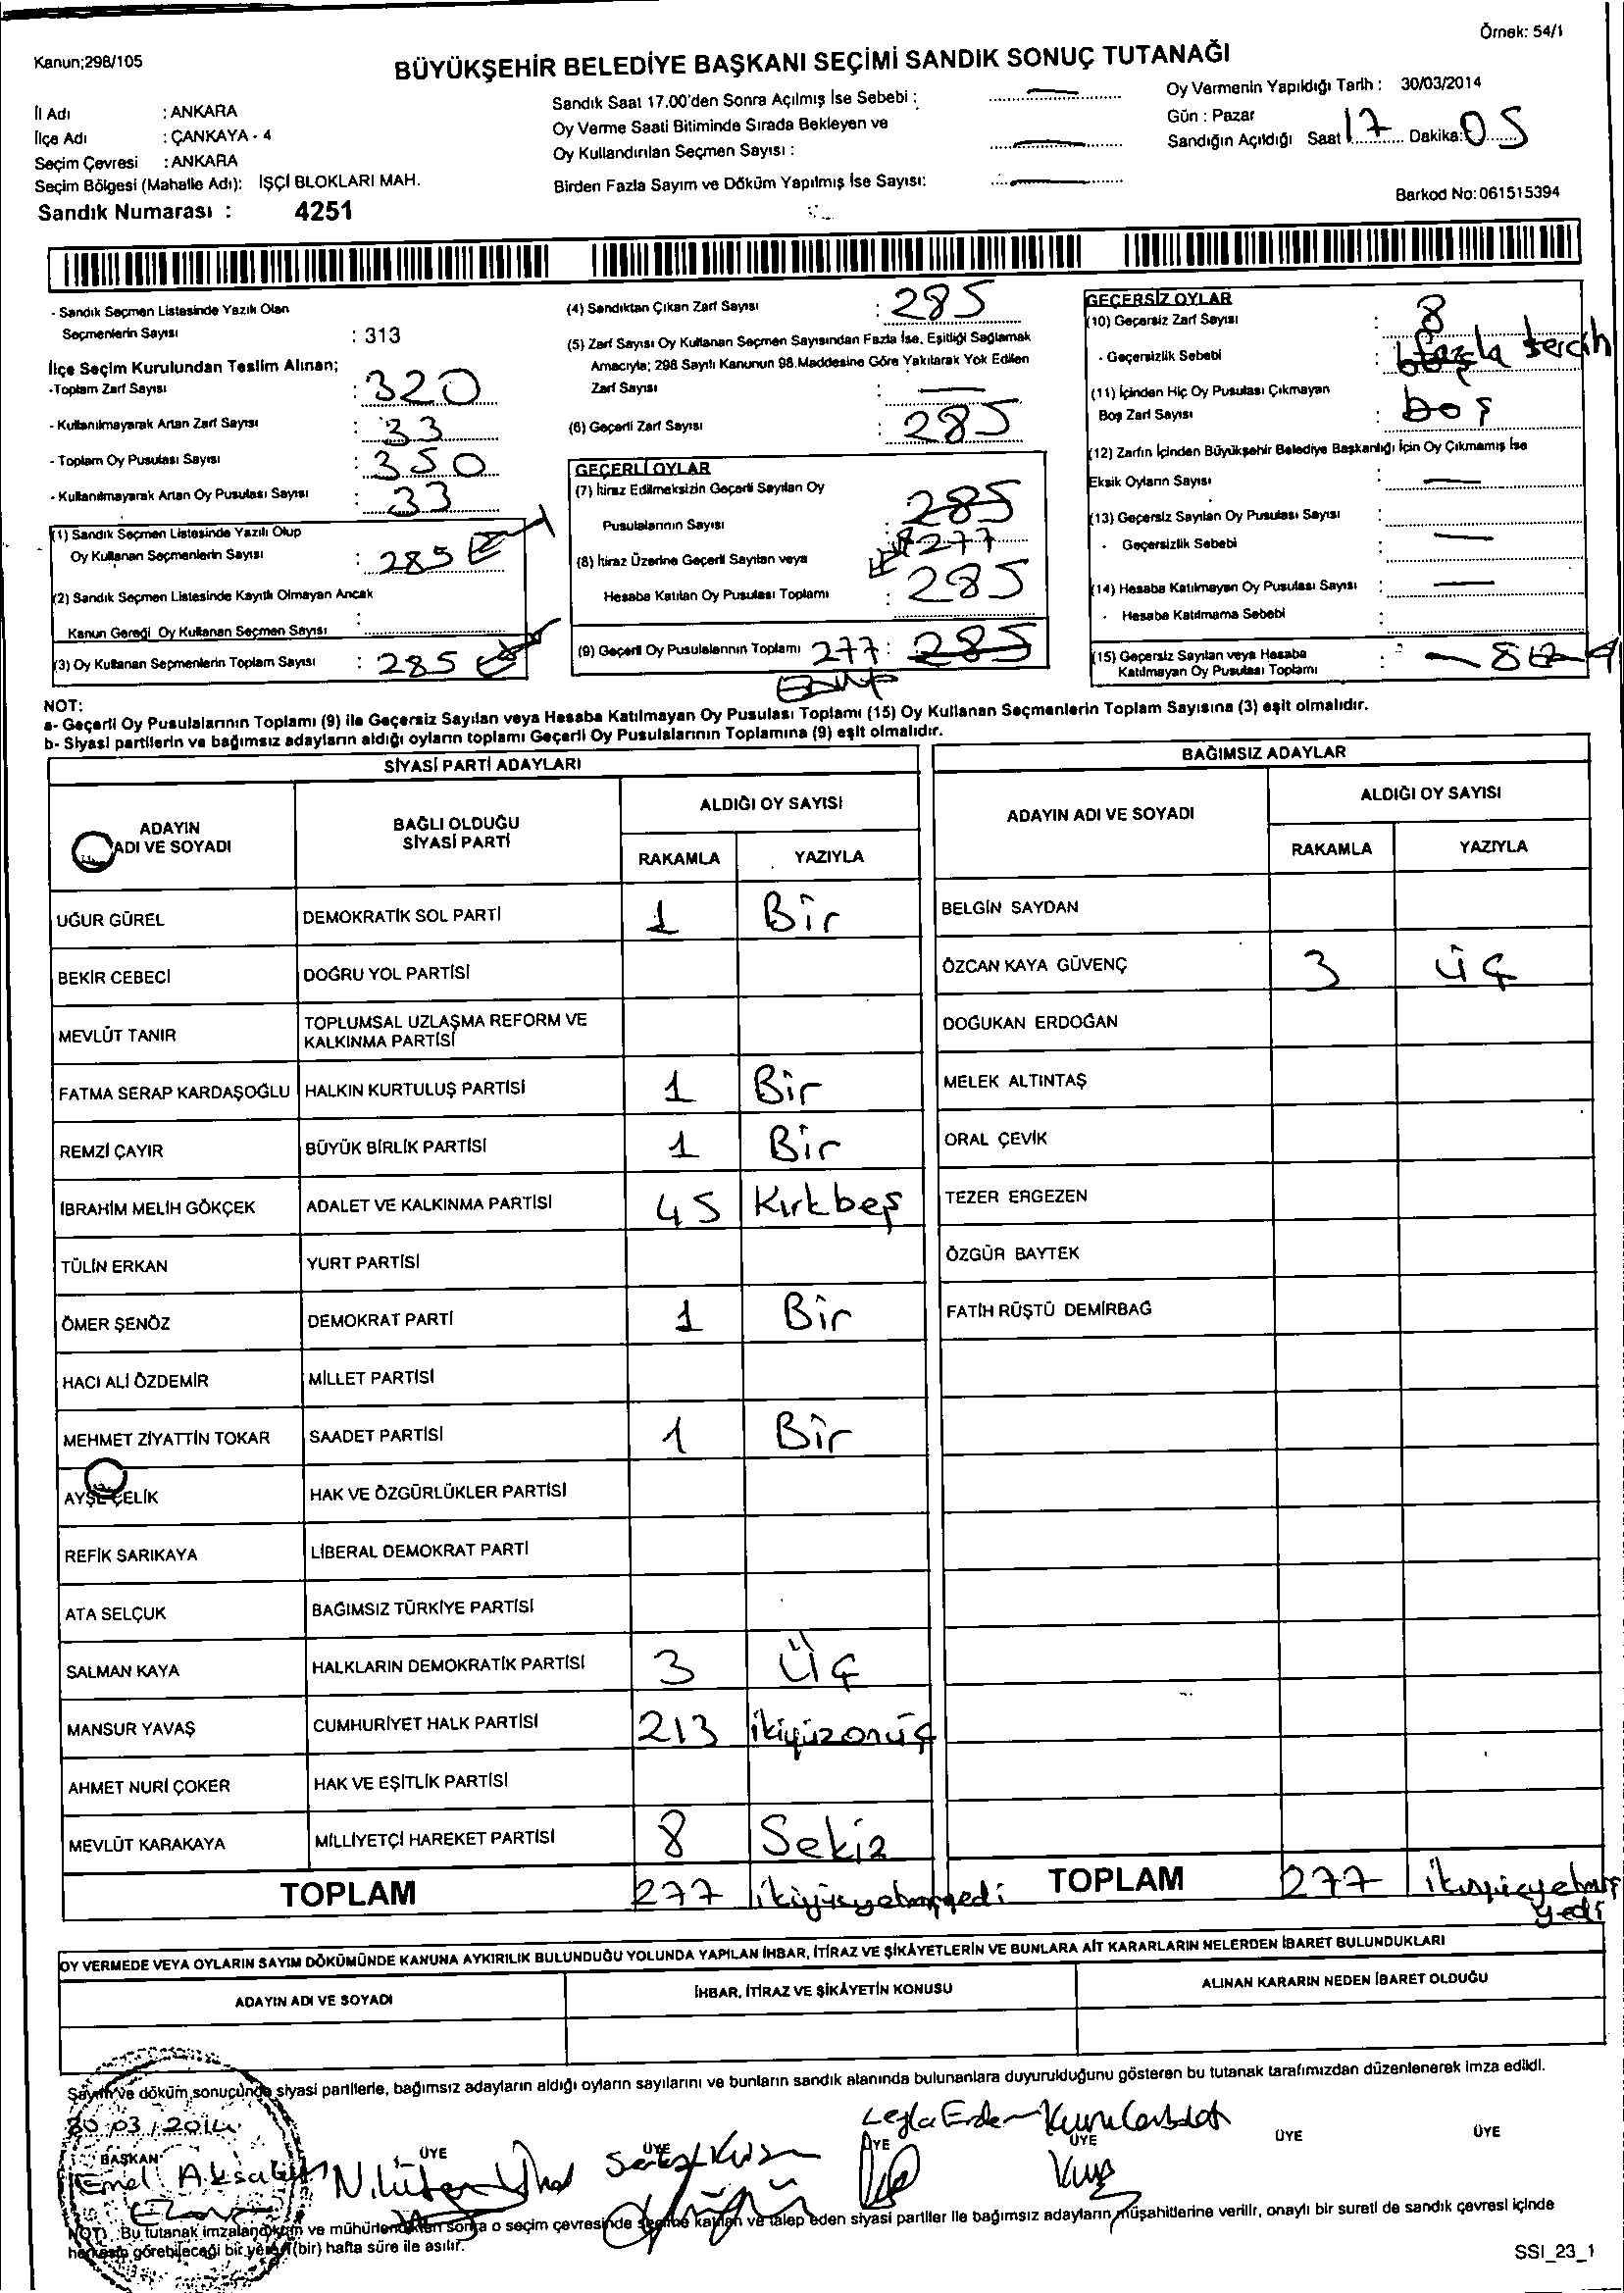 Örnek: 54/1
Kanun;298/105
BÜYÜKŞEHİR BELEDİYE BAŞKANI SEÇİMİ SANDIK SONUÇ TUTANAĞI
İl Adı : ANKARA
İlçe Adı : ÇANKAYA - 4
Seçim Çevresi : ANKARA
Seçim Bölgesi (Mahalle Adı): İŞÇİ BLOKLARI MAH.
Sandık Numarası : 4251
Sandık Saat 17.00'den Sonra Açılmış İse Sebebi :
Oy Verme Saati Bitiminde Sırada Bekleyen ve
Oy Kullandırılan Seçmen Sayısı :
Birden Fazla Sayım ve Döküm Yapılmış İse Sayısı:
Oy Vermenin Yapıldığı Tarih : 30/03/2014
Gün : Pazar
Sandığın Açıldığı Saat 17 Dakika: 05
Barkod No:061515394
- Sandık Seçmen Listesinde Yazılı Olan
Seçmenlerin Sayısı : 313
İlçe Seçim Kurulundan Teslim Alınan;
-Toplam Zarf Sayısı : 320
- Kullanılmayarak Artan Zarf Sayısı : 33
- Toplam Oy Pusulası Sayısı : 350
- Kullanılmayarak Artan Oy Pusulası Sayısı : 33
(1) Sandık Seçmen Listesinde Yazılı Olup
Oy Kullanan Seçmenlerin Sayısı : 285
(2) Sandık Seçmen Listesinde Kayıtlı Olmayan Ancak
Kanun Gereği Oy Kullanan Seçmen Sayısı :
(3) Oy Kullanan Seçmenlerin Toplam Sayısı : 285
(4) Sandıktan Çıkan Zarf Sayısı : 285
(5) Zarf Sayısı Oy Kullanan Seçmen Sayısından Fazla İse, Eşitliği Sağlamak
Amacıyla; 298 Sayılı Kanunun 98.Maddesine Göre Yakılarak Yok Edilen
Zarf Sayısı :
(6) Geçerli Zarf Sayısı : 285
GEÇERLİ OYLAR
(7) İtiraz Edilmeksizin Geçerli Sayılan Oy
Pusulalarının Sayısı : 285
277
(8) İtiraz Üzerine Geçerli Sayılan veya
Hesaba Katılan Oy Pusulası Toplamı : 285
(9) Geçerli Oy Pusulalarının Toplamı 277 : 285
GEÇERSİZ OYLAR
(10) Geçersiz Zarf Sayısı : 8
- Geçersizlik Sebebi : fazla tercih
(11) İçinden Hiç Oy Pusulası Çıkmayan
Boş Zarf Sayısı : boş
(12) Zarfın İçinden Büyükşehir Belediye Başkanlığı İçin Oy Çıkmamış İse
Eksik Oyların Sayısı :
(13) Geçersiz Sayılan Oy Pusulası Sayısı :
- Geçersizlik Sebebi :
(14) Hesaba Katılmayan Oy Pusulası Sayısı :
- Hesaba Katılmama Sebebi :
(15) Geçersiz Sayılan veya Hesaba
Katılmayan Oy Pusulası Toplamı : 8
NOT:
a- Geçerli Oy Pusulalarının Toplamı (9) ile Geçersiz Sayılan veya Hesaba Katılmayan Oy Pusulası Toplamı (15) Oy Kullanan Seçmenlerin Toplam Sayısına (3) eşit olmalıdır.
b- Siyasi partilerin ve bağımsız adayların aldığı oyların toplamı Geçerli Oy Pusulalarının Toplamına (9) eşit olmalıdır.
SİYASİ PARTİ ADAYLARI
ADAYIN ADI VE SOYADI BAĞLI OLDUĞU SİYASİ PARTİ ALDIĞI OY SAYISI
RAKAMLA YAZIYLA
UĞUR GÜREL DEMOKRATİK SOL PARTİ 1 Bir
BEKİR CEBECİ DOĞRU YOL PARTİSİ
MEVLÜT TANIR TOPLUMSAL UZLAŞMA REFORM VE KALKINMA PARTİSİ
FATMA SERAP KARDAŞOĞLU HALKIN KURTULUŞ PARTİSİ 1 Bir
REMZİ ÇAYIR BÜYÜK BİRLİK PARTİSİ 1 Bir
İBRAHİM MELİH GÖKÇEK ADALET VE KALKINMA PARTİSİ 45 Kırkbeş
TÜLİN ERKAN YURT PARTİSİ
ÖMER ŞENÖZ DEMOKRAT PARTİ 1 Bir
HACI ALİ ÖZDEMİR MİLLET PARTİSİ
MEHMET ZİYATTİN TOKAR SAADET PARTİSİ 1 Bir
AYŞE ÇELİK HAK VE ÖZGÜRLÜKLER PARTİSİ
REFİK SARIKAYA LİBERAL DEMOKRAT PARTİ
ATA SELÇUK BAĞIMSIZ TÜRKİYE PARTİSİ
SALMAN KAYA HALKLARIN DEMOKRATİK PARTİSİ 3 Üç
MANSUR YAVAŞ CUMHURİYET HALK PARTİSİ 213 ikiyüzonüç
AHMET NURİ ÇOKER HAK VE EŞİTLİK PARTİSİ
MEVLÜT KARAKAYA MİLLİYETÇİ HAREKET PARTİSİ 8 Sekiz
TOPLAM 277 ikiyüzyetmişyedi
BAĞIMSIZ ADAYLAR
ADAYIN ADI VE SOYADI ALDIĞI OY SAYISI
RAKAMLA YAZIYLA
BELGİN SAYDAN
ÖZCAN KAYA GÜVENÇ 3 üç
DOĞUKAN ERDOĞAN
MELEK ALTINTAŞ
ORAL ÇEVİK
TEZER ERGEZEN
ÖZGÜR BAYTEK
FATİH RÜŞTÜ DEMİRBAĞ
TOPLAM 277 ikiyüzyetmiş
yedi
OY VERMEDE VEYA OYLARIN SAYIM DÖKÜMÜNDE KANUNA AYKIRILIK BULUNDUĞU YOLUNDA YAPILAN İHBAR, İTİRAZ VE ŞİKÂYETLERİN VE BUNLARA AİT KARARLARIN NELERDEN İBARET BULUNDUKLARI
ADAYIN ADI VE SOYADI İHBAR, İTİRAZ VE ŞİKÂYETİN KONUSU ALINAN KARARIN NEDEN İBARET OLDUĞU
Sayım ve döküm sonucunda siyasi partilerle, bağımsız adayların aldığı oyların sayılarını ve bunların sandık alanında bulunanlara duyurulduğunu gösteren bu tutanak tarafımızdan düzenlenerek imza edildi.
30/03/2014
BAŞKAN ÜYE ÜYE ÜYE ÜYE ÜYE ÜYE
Emel
Leyla Erdem
NOT: Bu tutanak imzalandıktan ve mühürlendikten sonra o seçim çevresinde seçime katılan ve talep eden siyasi partiler ile bağımsız adayların müşahitlerine verilir, onaylı bir sureti de sandık çevresi içinde
herkesin görebileceği bir yere 1(bir) hafta süre ile asılır.
SSI_23_1